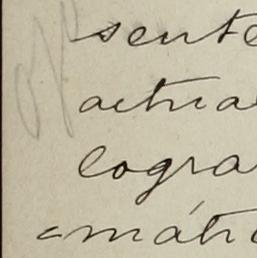 sente
actua
logra
=máti